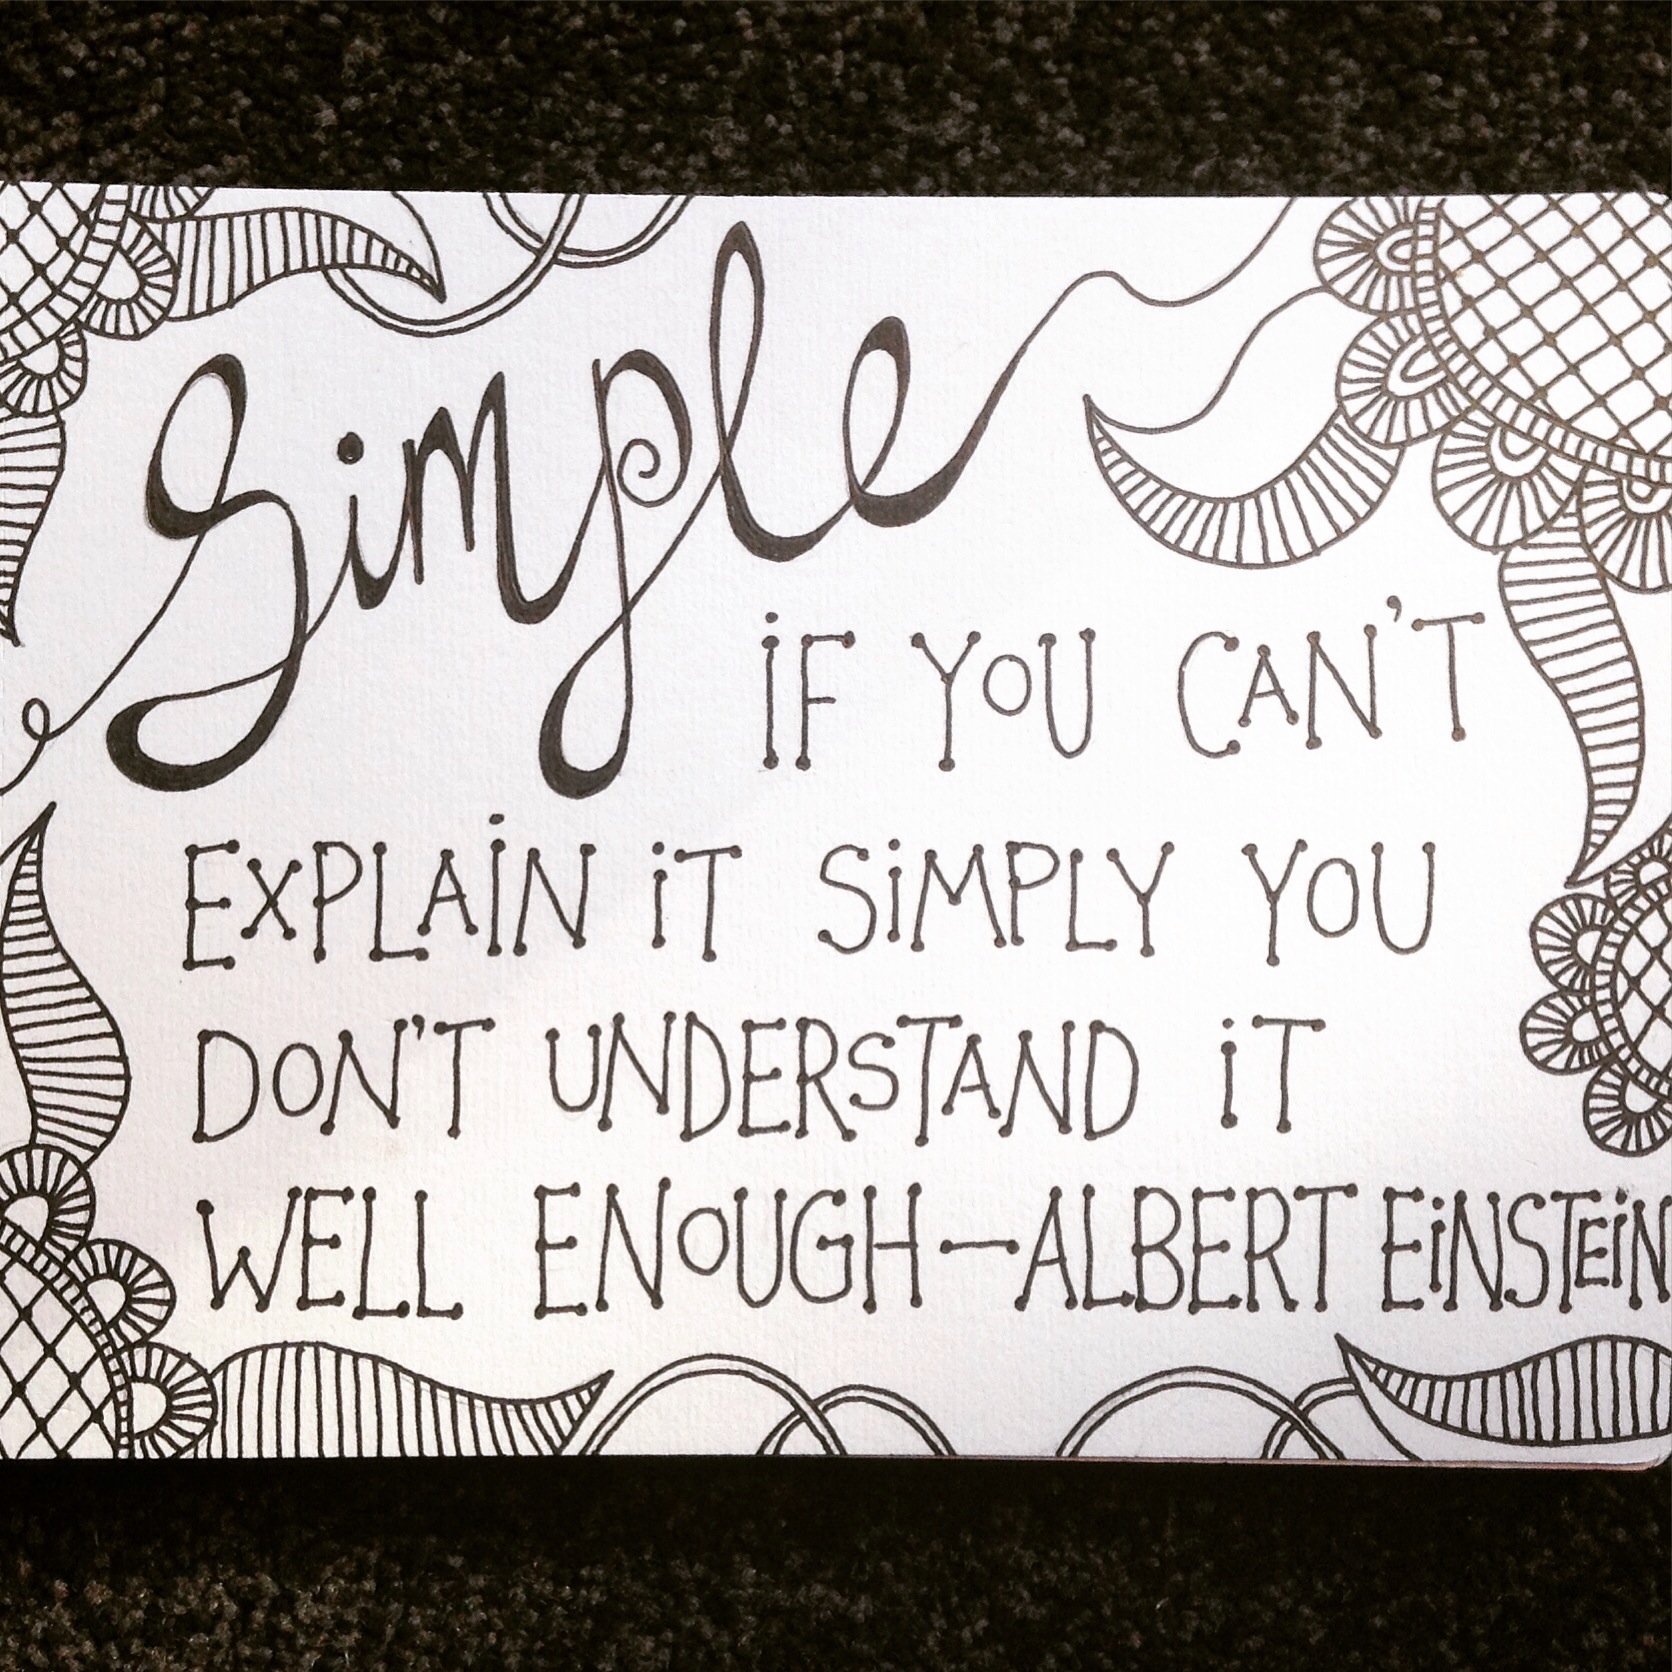 Simple
iF YOU CAN'T
EXPLAiN iT SiMPLY YOU
DON'T UNDERSTAND iT
WELL ENOUGH—ALBERT EiNSTEiN